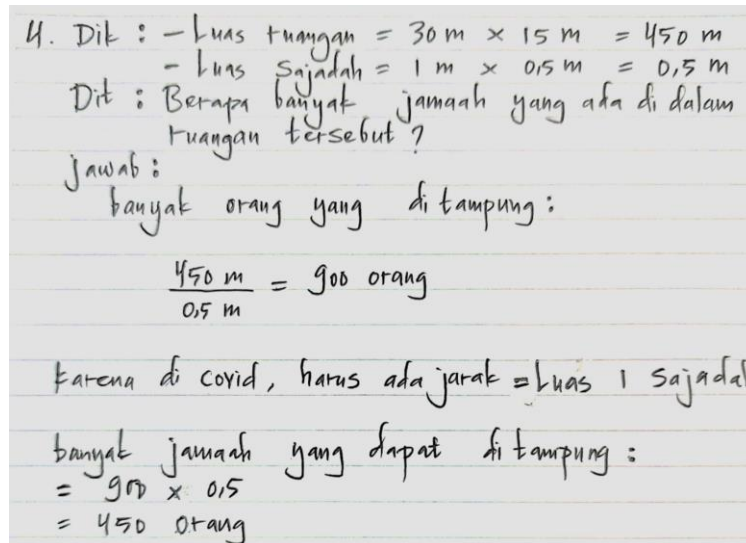 4. Dik : - Luas ruangan = 30 m × 15 m = 450 m
- Luas Sajadah = 1 m × 0,5 m = 0,5 m
Dit : Berapa banyak jamaah yang ada di dalam
ruangan tersebut ?
jawab :
banyak orang yang di tampung :
450 m / 0,5 m = 900 orang
karena di covid, harus ada jarak = Luas 1 Sajada
banyak jamaah yang dapat di tampung :
= 900 × 0,5
= 450 Orang